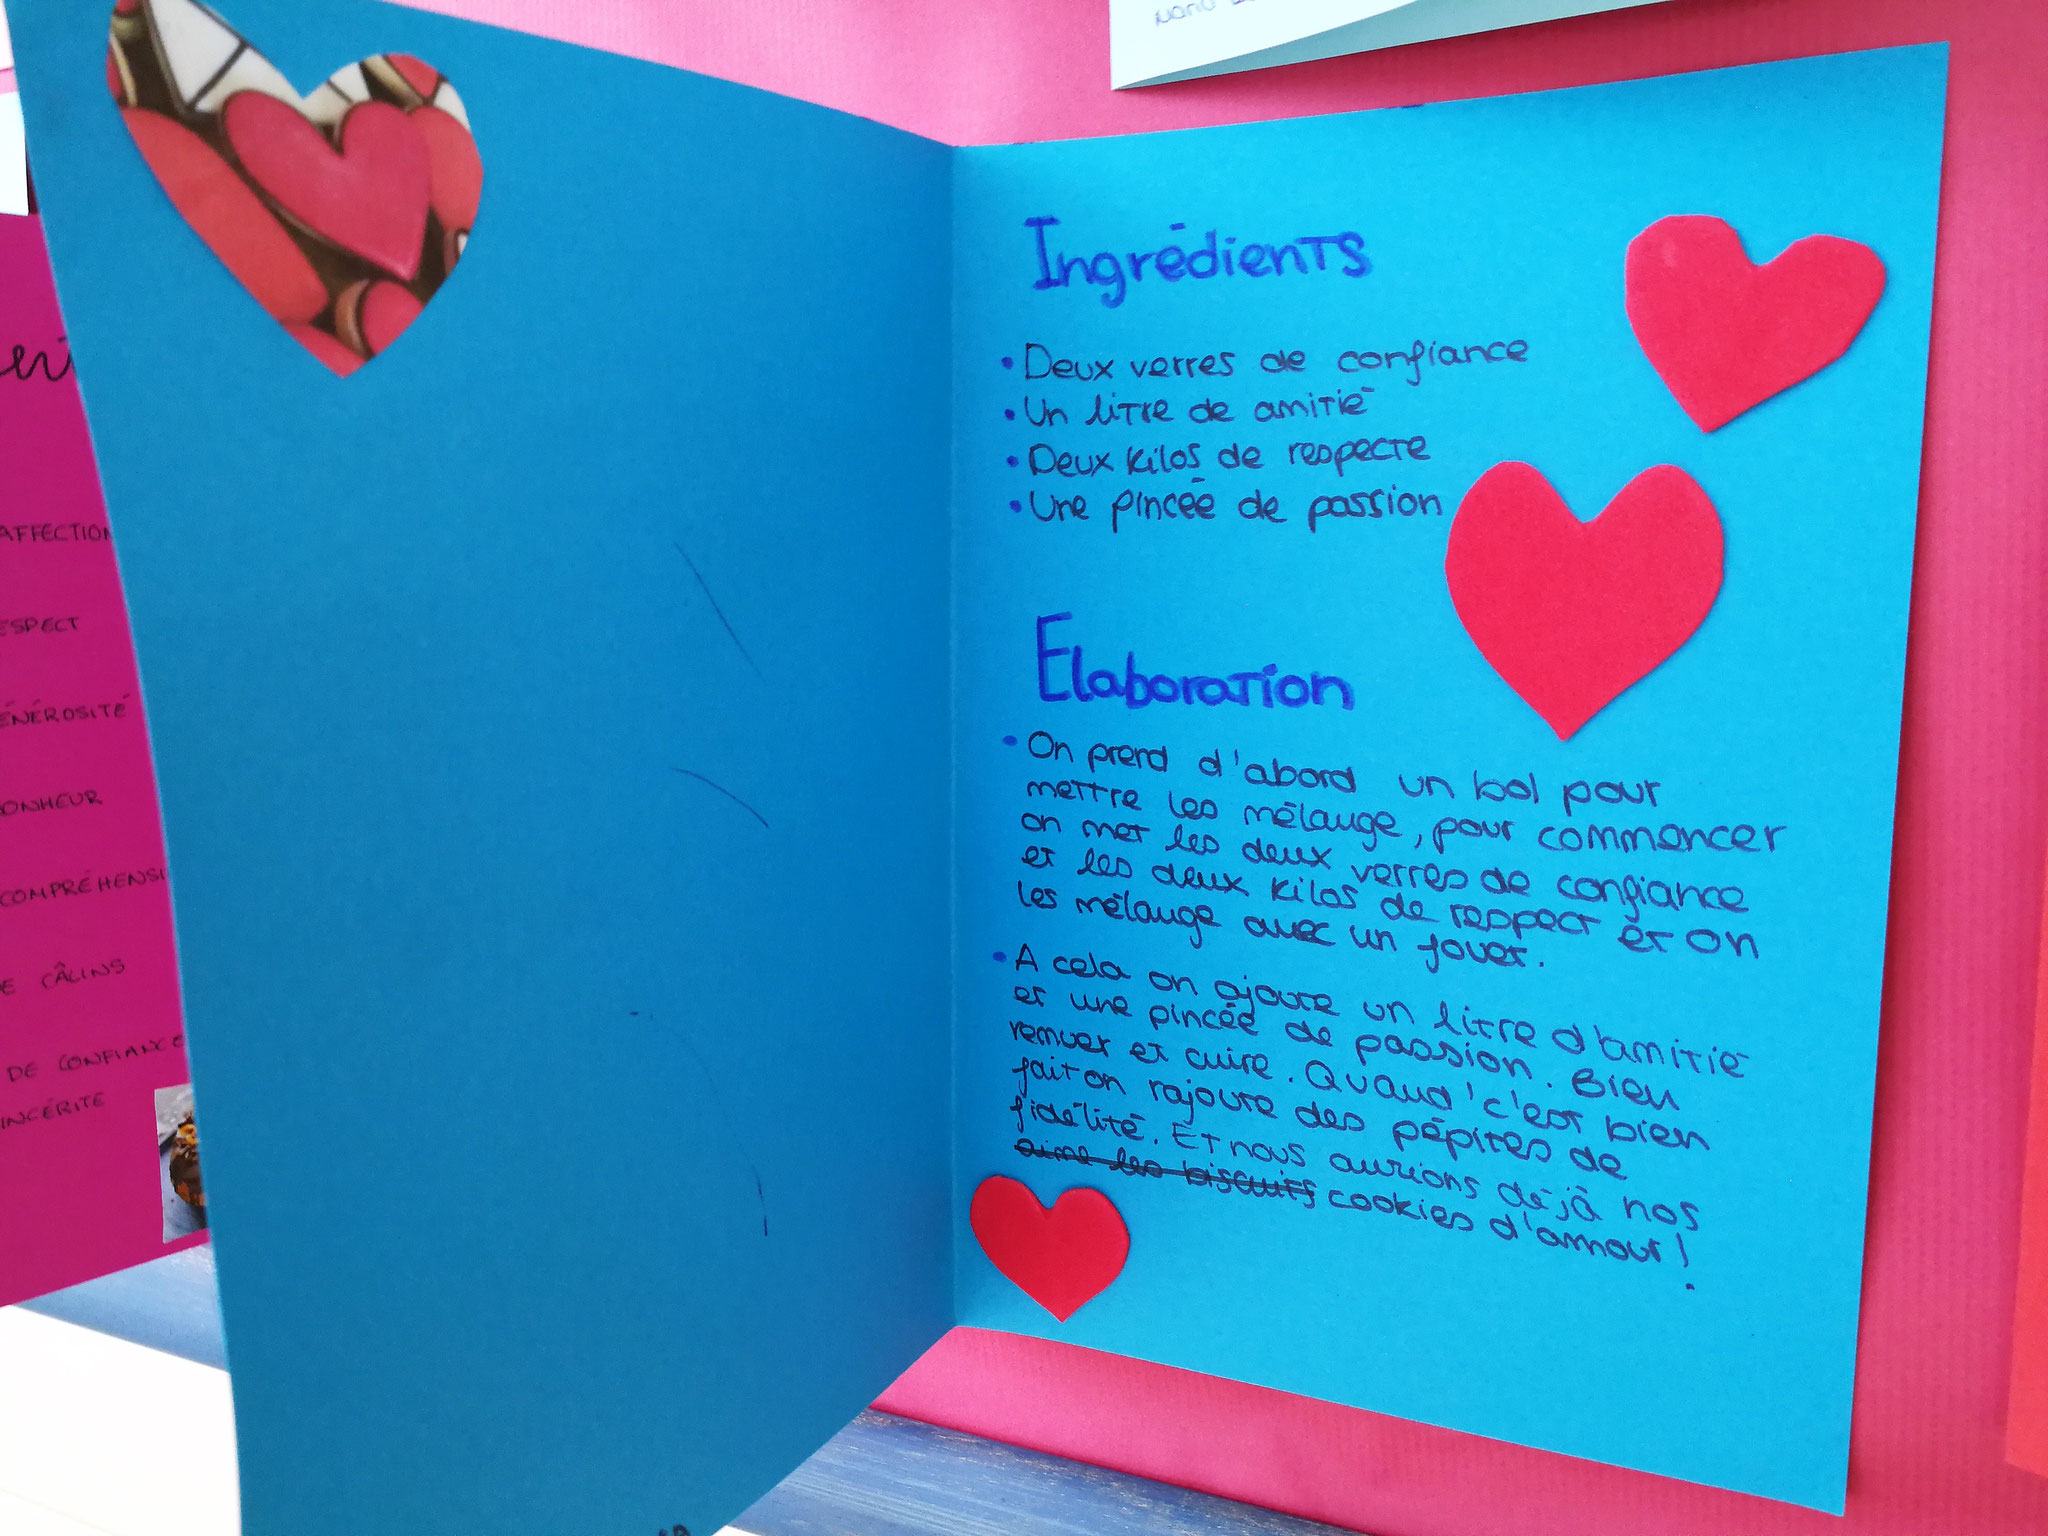 AFFECTION
ESPECT
ÉNÉROSITÉ
ONHEUR
COMPRÉHENSI
E CÂLINS
DE CONFIANCE
INCÉRITE
Ingrédients
• Deux verres de confiance
• Un litre de amitié
• Deux kilos de respecte
• Une pincée de passion
Elaboration
• On prend d'abord un bol pour
mettre les mélauge, pour commencer
on met les deux verres de confiance
et les deux kilos de respect et on
les mélauge avec un fouet.
• A cela on ajoute un litre d'amitié
et une pincée de passion. Bien
remuer et cuire. Quand c'est bien
fait on rajoute des pépites de
fidélité. Et nous aurions déjà nos
aime les biscuits cookies d'amour!